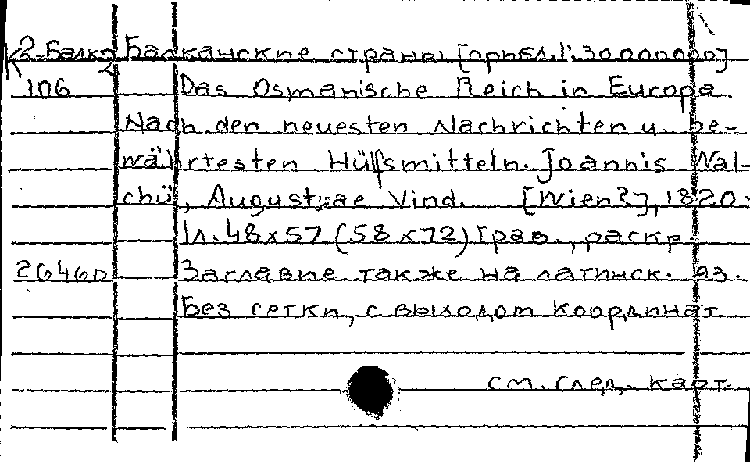 К 2-Балк 2 Балканские страны [прибл. 1:3000000]
106 Das Osmanische Reich in Europa.
Nach den neuesten Nachrichten u. be-
währtesten Hülfsmitteln. Joannis Wal-
chü, Augustae Vind. [Wien?], 1820.
1л. 48x57 (58x72) Грав., раскр.
2646п Заглавие также на латинск. яз.
Без сетки, с выходом координат
см. след. карт.